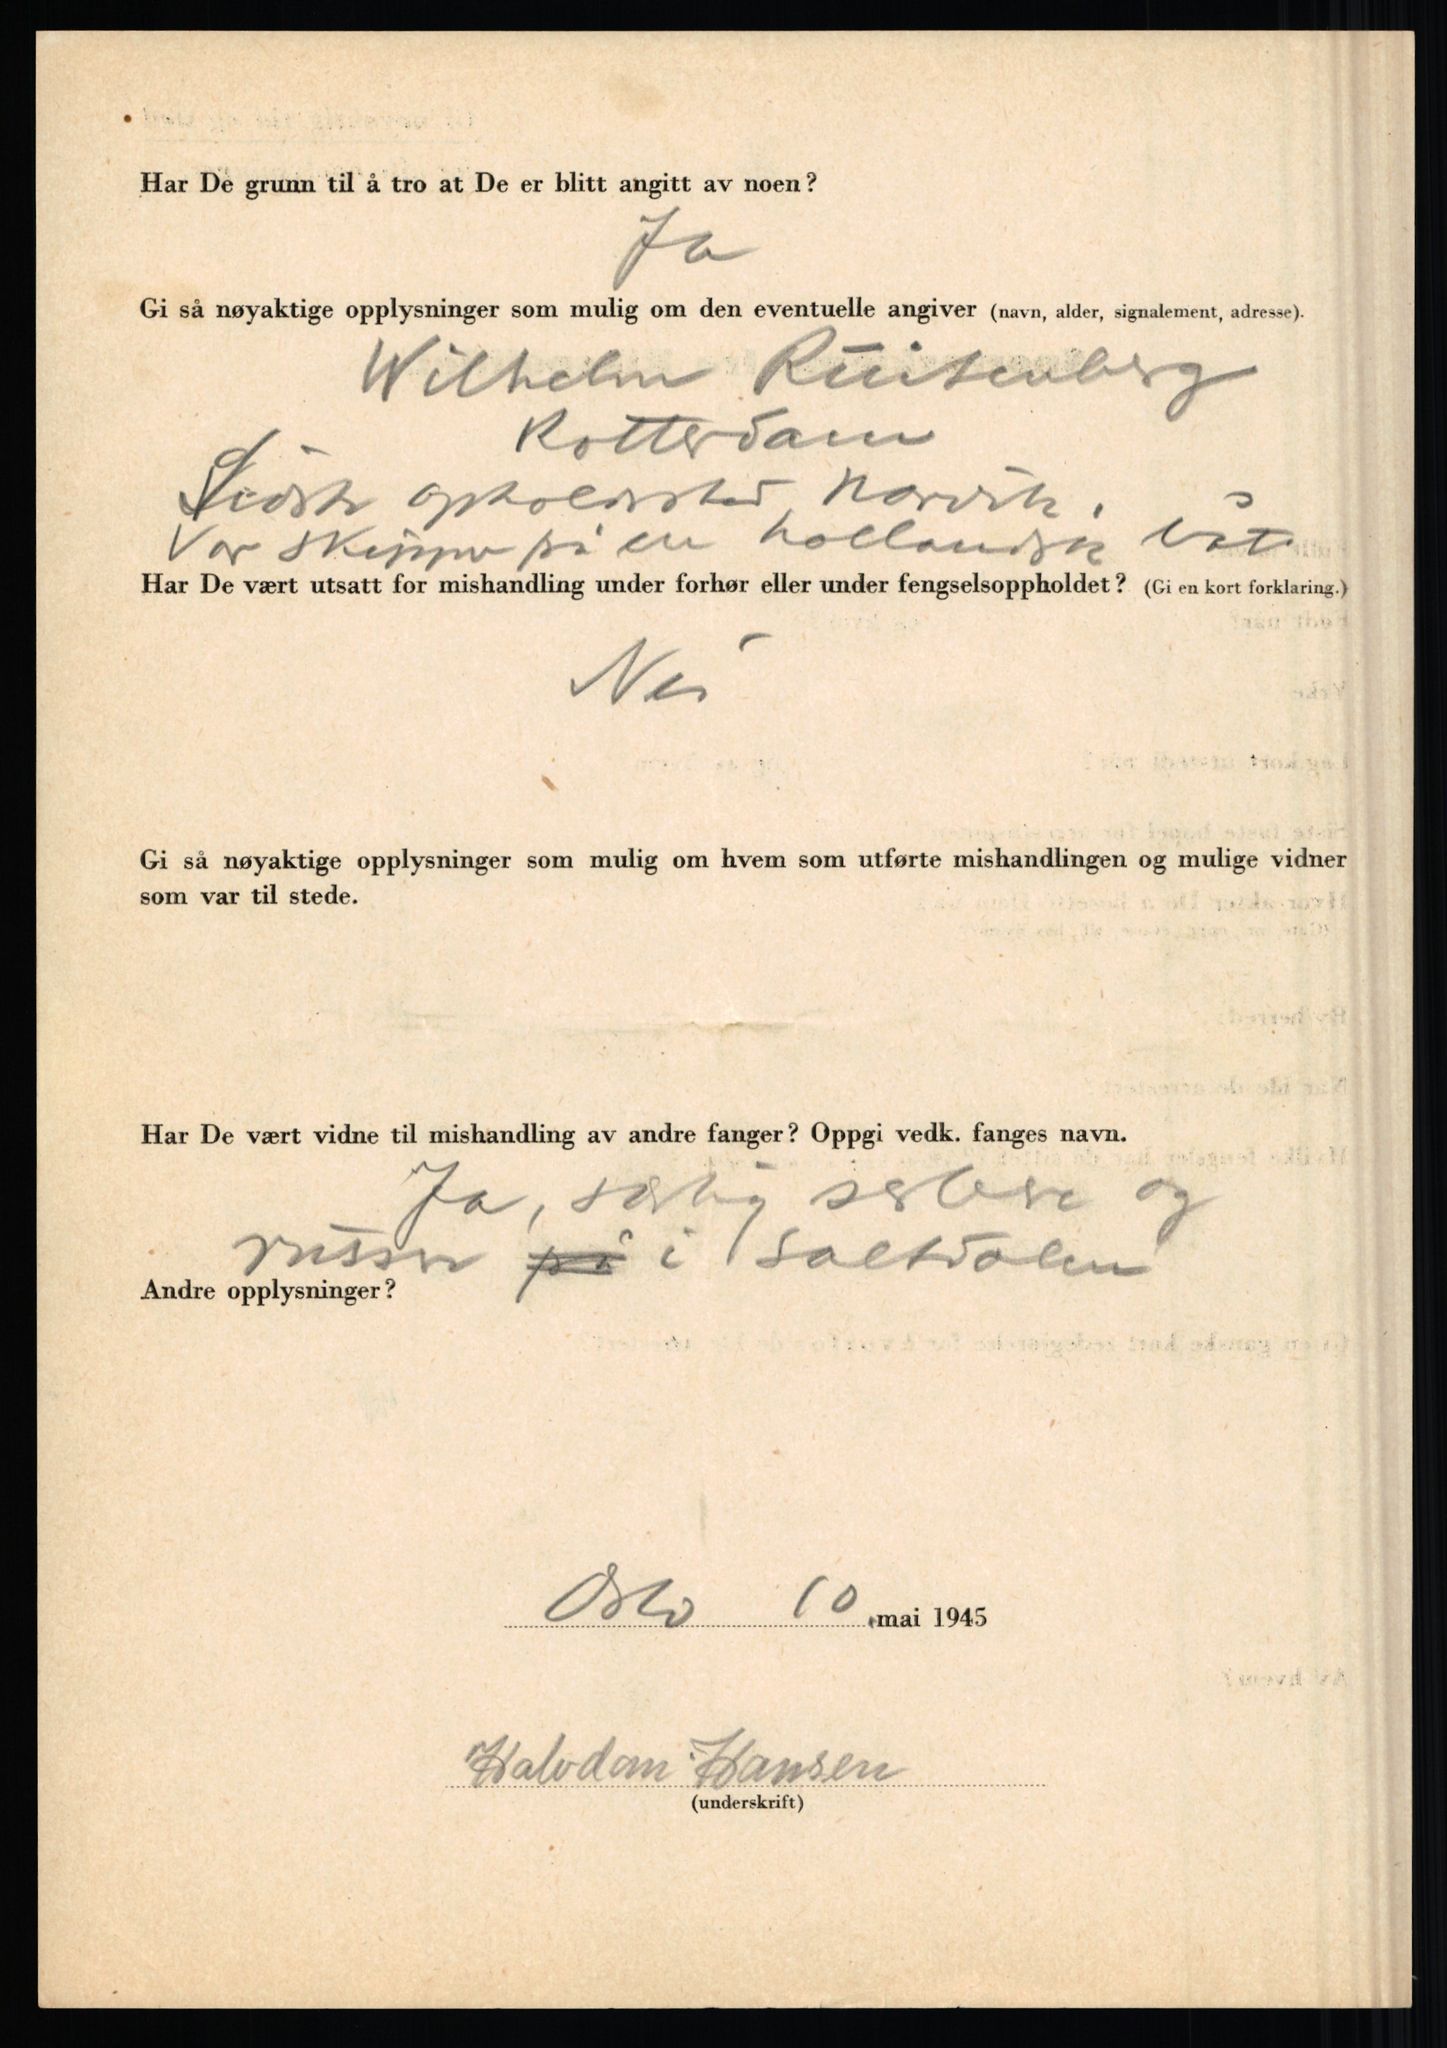 Har De grunn til å tro at De er blitt angitt av noen?
Ja
Gi så nøyaktige opplysninger som mulig om den eventuelle angiver (navn, alder, signalement, adresse).
Wilhelm Ruitenberg
Rotterdam
Sidste opholdssted Narvik.
Var skipper på en hollandsk båt
Har De vært utsatt for mishandling under forhør eller under fengselsoppholdet? (Gi en kort forklaring.)
Nei
Gi så nøyaktige opplysninger som mulig om hvem som utførte mishandlingen og mulige vidner
som var til stede.
Har De vært vidne til mishandling av andre fanger? Oppgi vedk. fanges navn.
Ja, særlig serbere og
russere på i Saltdalen
Andre opplysninger?
Oslo 10 mai 1945
Halvdan Hansen
(underskrift)